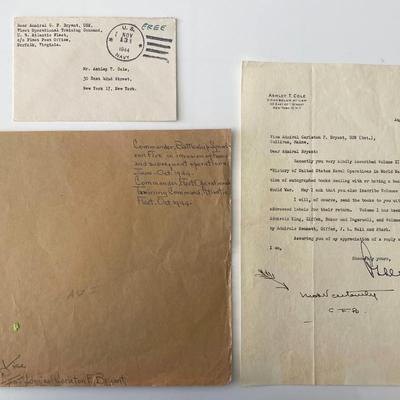 Rear Admiral C. F. Bryant, USN,
Fleet Operational Training Command,
U. S. Atlantic Fleet,
c/o Fleet Post Office,
Norfolk, Virginia.
U. S.
NOV
1944
NAVY
FREE
Mr. Ashley T. Cole,
30 East 42nd Street,
New York 17, New York.
Commander, Battleship
Five in invasion of
and subsequent operations
June - Oct. 1944.
Commander Fleet Operational
Training Command, Atlantic
Fleet, Oct. 1944.
Vice
Admiral Carleton F. Bryant
ASHLEY T. COLE
COUNSELOR AT LAW
NEW YORK 17, N. Y.
Vice Admiral Carleton F. Bryant, USN (Ret.),
Sullivan, Maine.
Dear Admiral Bryant:
Recently you very kindly inscribed Volume
"History of United States Naval Operations in World War
tion of autographed books dealing with or having a
World War. May I ask that you also inscribe Volume
I will, of course, send the books to you with
addressed labels for their return. Volume
Admirals King, Giffen, Baker and Ingersoll, and Volume
by Admirals Bennett, Giffen, J. L. Hall and Stark.
Assuring you of my appreciation of a reply
I am,
Sincerely yours,
Most certainly
C. F. B.